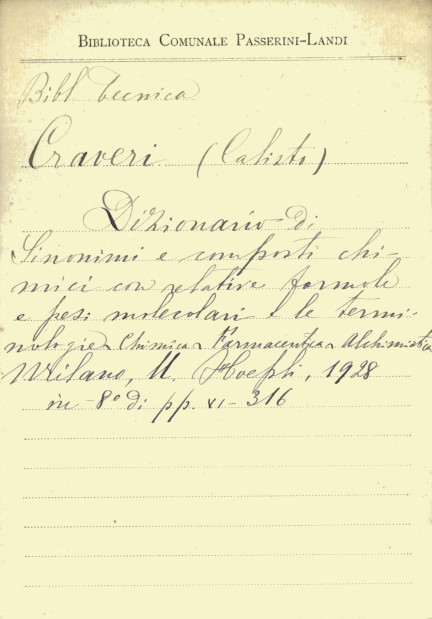 BIBLIOTECA COMUNALE PASSERINI-LANDI
Bibl tecnica
Craveri (Calisto)
Dizionario di
Sinonimi e composti chi-
mici con relative formole
e pesi molecolari e le termi-
nologie Chimica Farmaceutica Alchimistica
Milano, U. Hoepli, 1928
in 8° di pp. VI-316